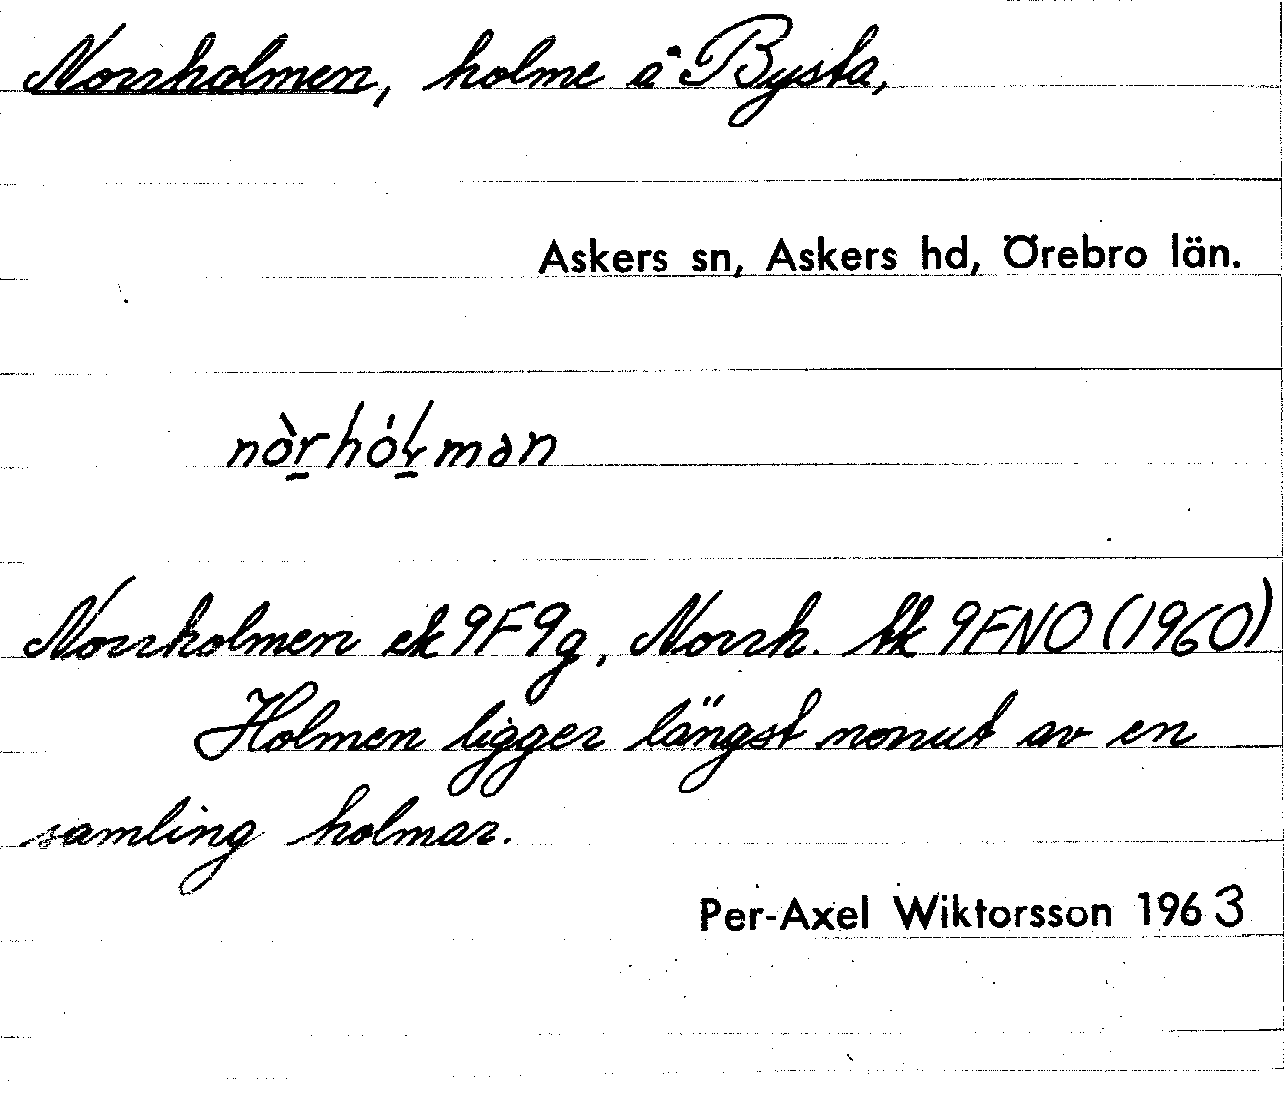 Norrholmen, holme å Bysta,
Askers sn, Askers hd, Örebro län.
nòrhólmən
Norrholmen ek 9F9g, Norrh. tk 9FNO (1960)
Holmen ligger längst norrut av en
samling holmar.
Per-Axel Wiktorsson 1963